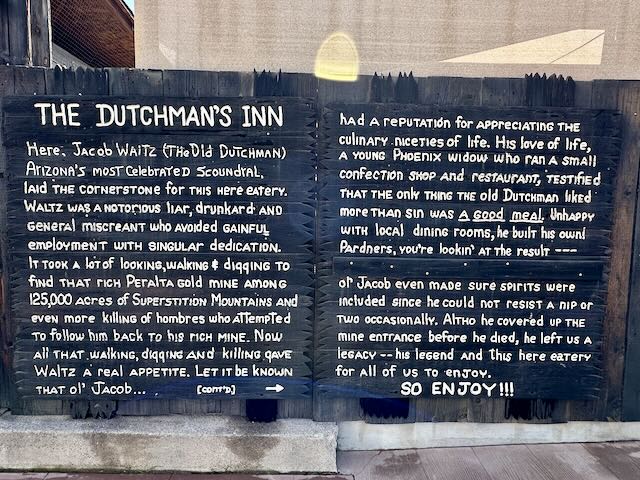 THE DUTCHMAN'S INN
Here, JACOB WAITZ (THE Old DUTCHMAN)
ARIZONA'S MOST CELEBRATED SCOUNDRAL,
LAID THE CORNERSTONE FOR THIS HERE EATERY.
WALTZ WAS A NOTORIOUS LIAR, DRUNKARD AND
GENERAL MISCREANT WHO AVOIDED GAINFUL
EMPLOYMENT WITH SINGULAR DEDICATION.
IT TOOK A LOT OF LOOKING, WALKING & DIGGING TO
FIND THAT RICH PERALTA GOLD MINE AMONG
125,000 ACRES OF SUPERSTITION MOUNTAINS AND
EVEN MORE KILLING OF HOMBRES WHO ATTEMPTED
TO FOLLOW HIM BACK TO HIS RICH MINE. NOW
ALL THAT WALKING, DIGGING AND KILLING GAVE
WALTZ A REAL APPETITE. LET IT BE KNOWN
THAT OL' JACOB... [CONT'D] →
HAD A REPUTATION FOR APPRECIATING THE
CULINARY NICETIES OF LIFE. HIS LOVE OF LIFE,
A YOUNG PHOENIX WIDOW WHO RAN A SMALL
CONFECTION SHOP AND RESTAURANT, TESTIFIED
THAT THE ONLY THING THE OLD DUTCHMAN LIKED
MORE THAN SIN WAS A GOOD MEAL. UNHAPPY
WITH LOCAL DINING ROOMS, HE BUILT HIS OWN!
PARDNERS, YOU'RE LOOKIN' AT THE RESULT ---
OL' JACOB EVEN MADE SURE SPIRITS WERE
INCLUDED SINCE HE COULD NOT RESIST A NIP OR
TWO OCCASIONALLY. ALTHO HE COVERED UP THE
MINE ENTRANCE BEFORE HE DIED, HE LEFT US A
LEGACY -- HIS LEGEND AND THIS HERE EATERY
FOR ALL OF US TO ENJOY.
SO ENJOY!!!